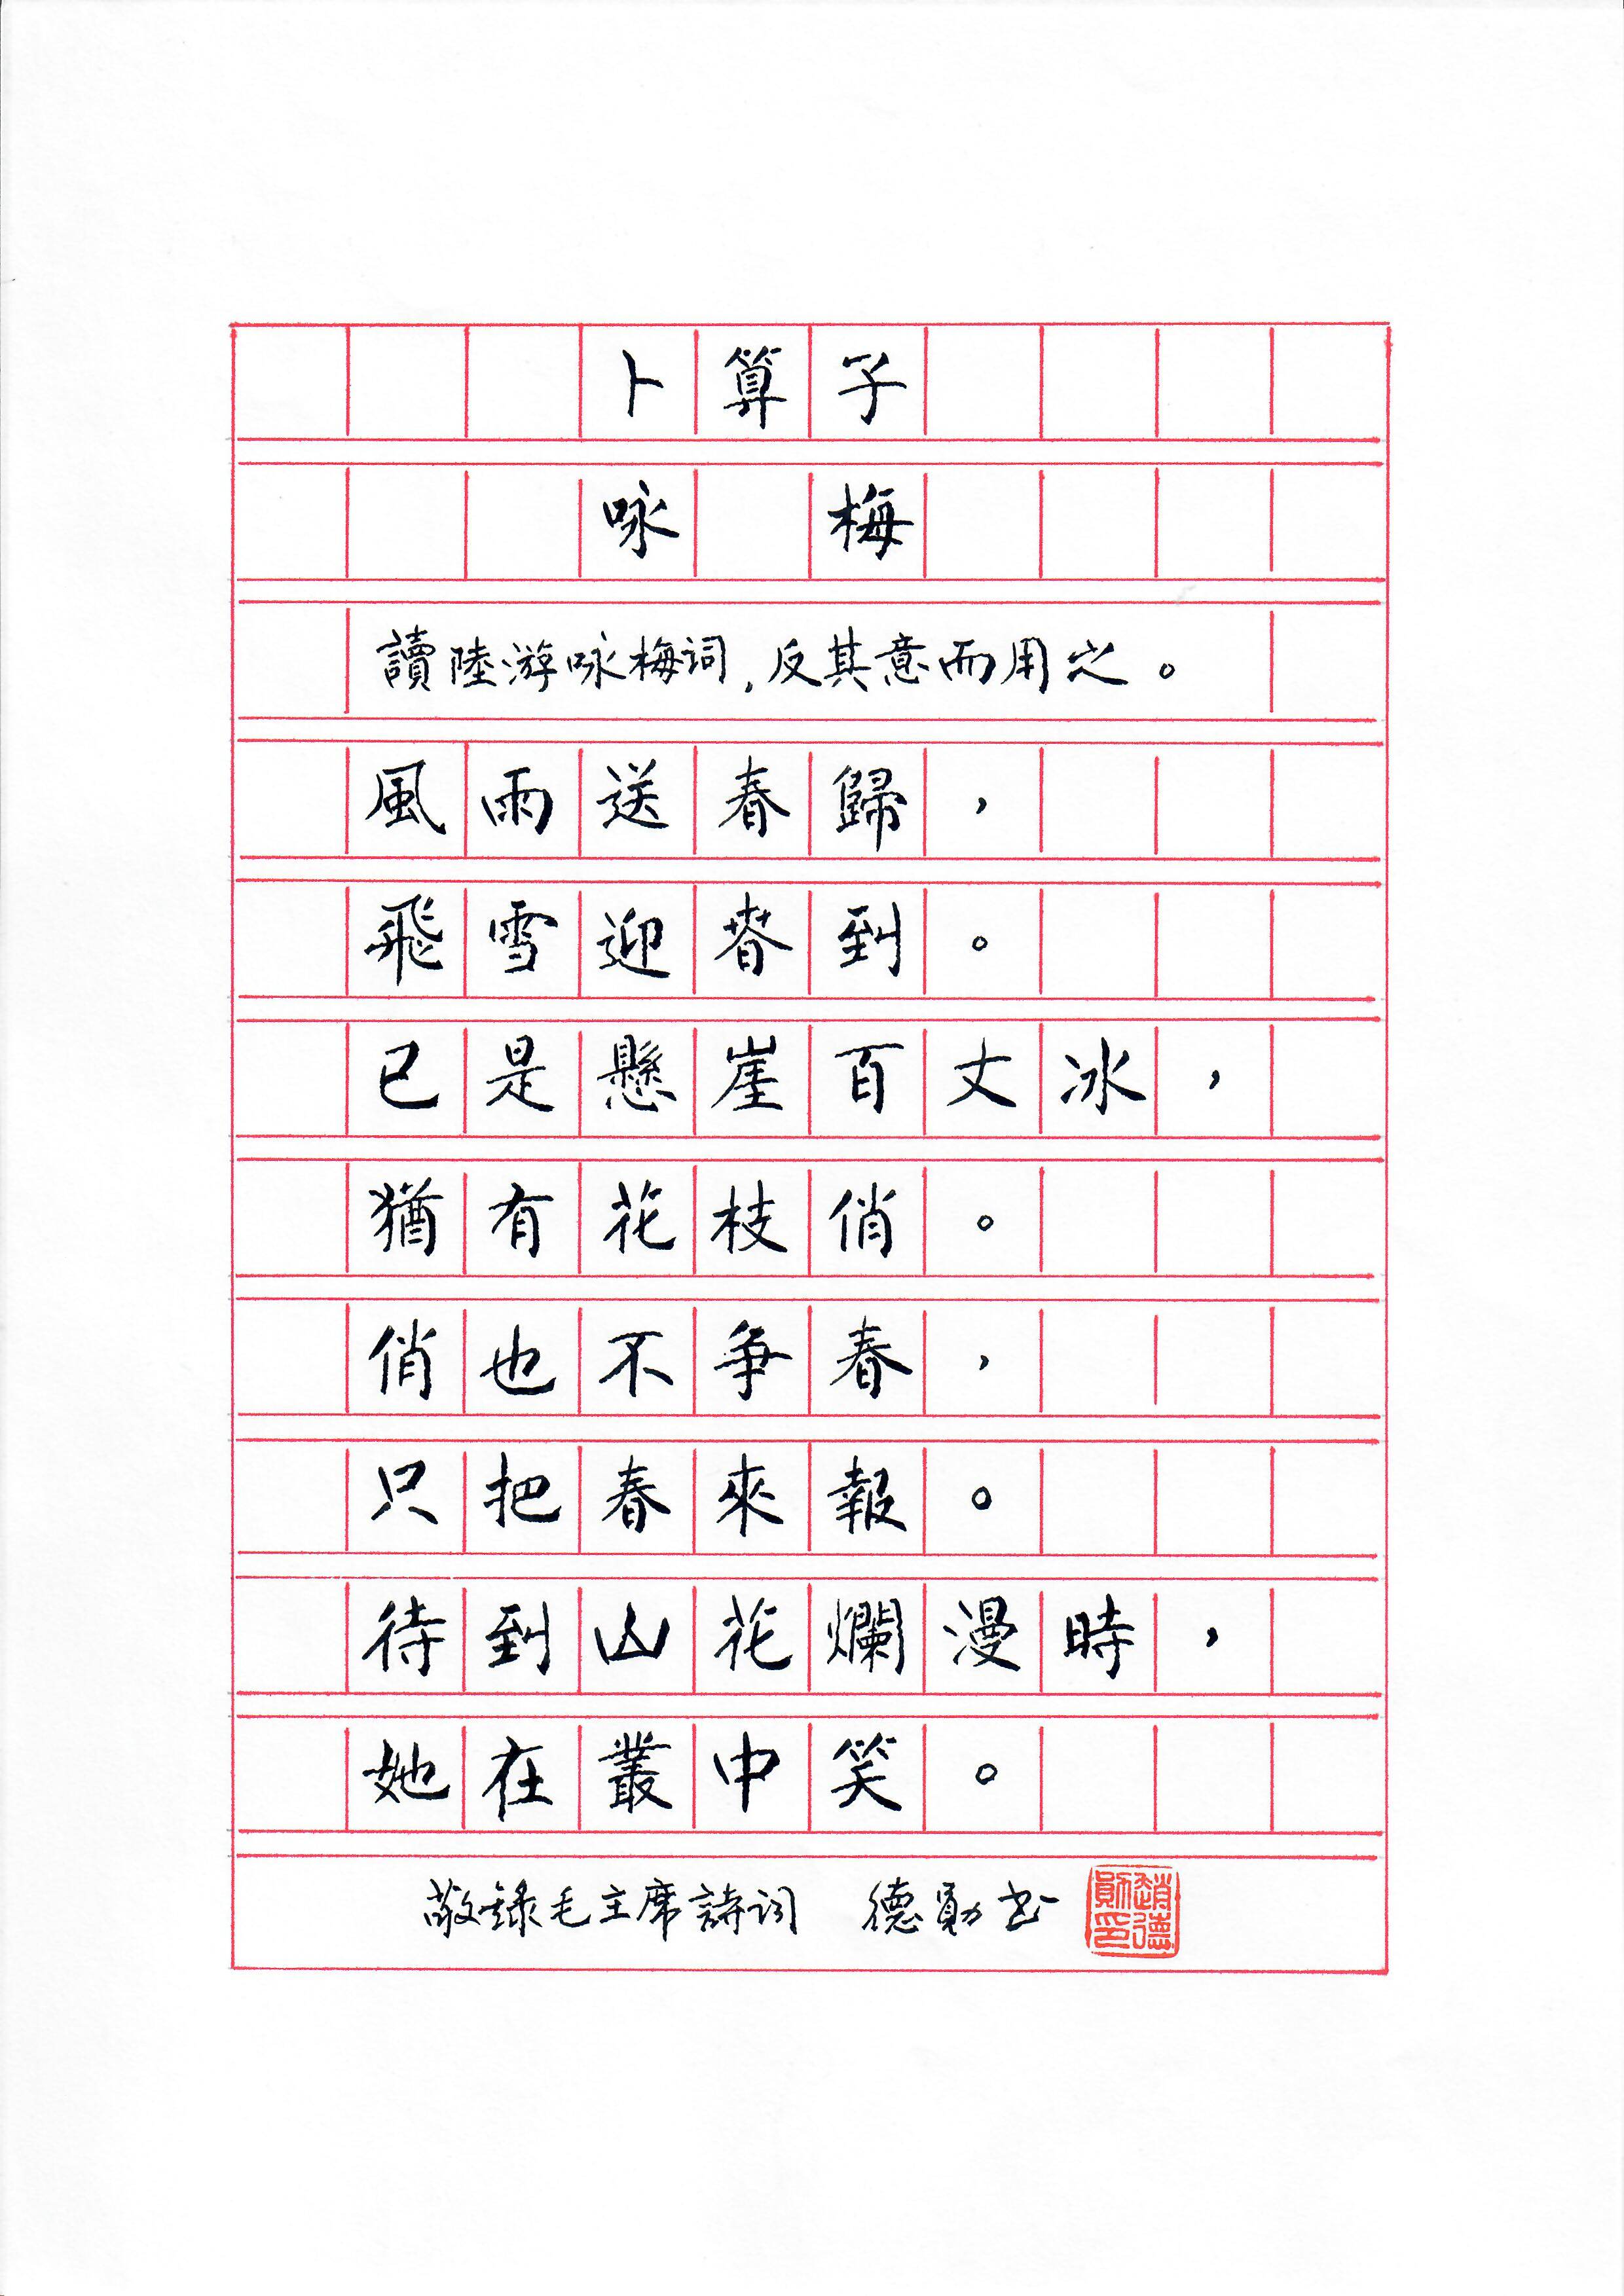 卜算子
咏 梅
讀陸游咏梅詞，反其意而用之。
風雨送春歸，
飛雪迎春到。
已是懸崖百丈冰，
猶有花枝俏。
俏也不争春，
只把春來報。
待到山花爛漫時，
她在叢中笑。
敬録毛主席詩词 德勛书
趙德勛印